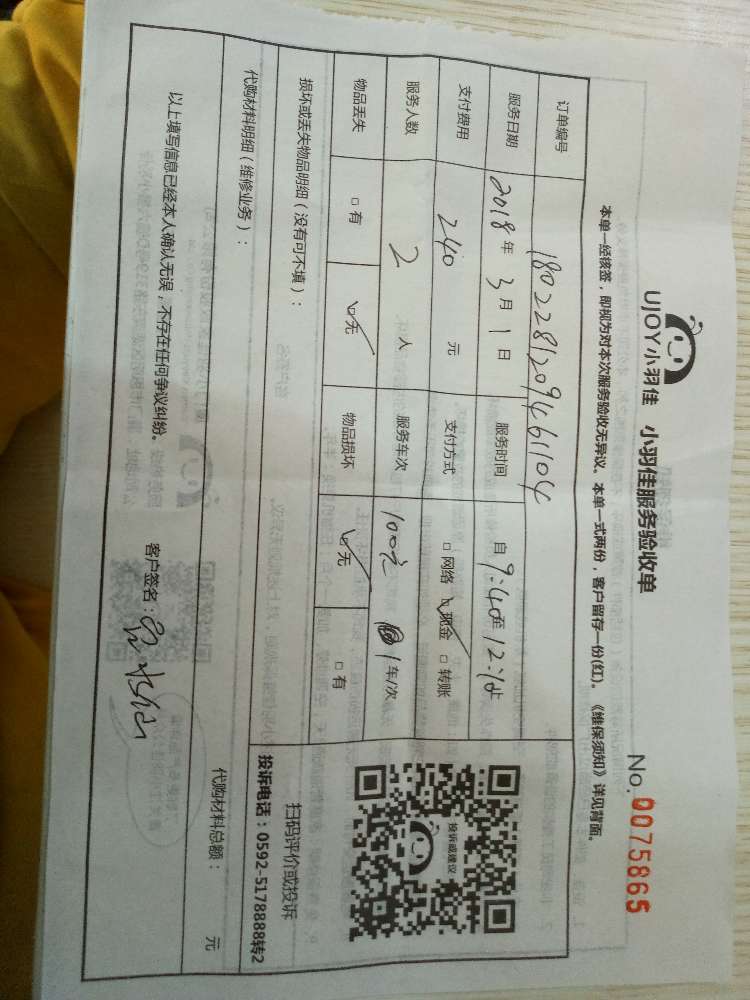 UJOY小羽佳 小羽佳服务验收单 No. 0075865
本单一经核签，即视为对本次服务验收无异议。本单一式两份，客户留存一份(红)。《维保须知》详见背面。
订单编号 1802281209461104
服务日期 2018年3月1日 服务时间 自9:40至12:10
支付费用 240元 支付方式 □网络 ☑现金 □转账
服务人数 2人 服务车次 100元 1车/次
物品丢失 □有 ☑无 物品损坏 ☑无 □有
损坏或丢失物品明细（没有可不填）：
投诉或建议
扫码评价或投诉
投诉电话：0592-5178888转2
代购材料明细（维修业务）：
代购材料总额： 元
以上填写信息已经本人确认无误，不存在任何争议纠纷。 客户签名：